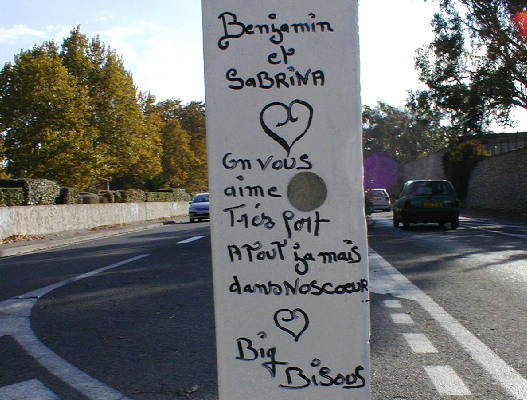 Benjamin
et
SABRINA
On vous
aime
Trés fort
A Tout jamais
dans Nos coeur
Big
Bisous